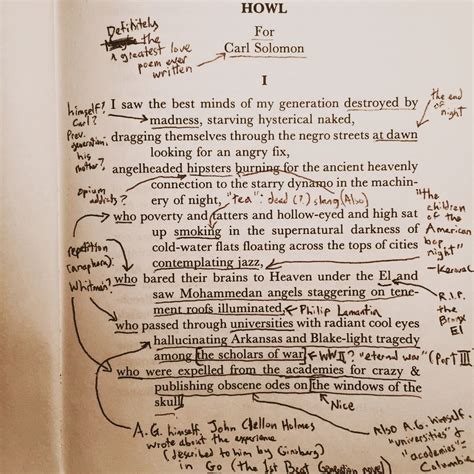 HOWL
Definitely
the
greatest love
poem ever
written
For
Carl Solomon
I
himself?
Carl?
Prev.
generation;
his
mother?
the end
of
night
I saw the best minds of my generation destroyed by
madness, starving hysterical naked,
dragging themselves through the negro streets at dawn
looking for an angry fix,
angelheaded hipsters burning for the ancient heavenly
connection to the starry dynamo in the machin-
ery of night,
opium
addicts?
"tea": dead (?) slang (Also)
who poverty and tatters and hollow-eyed and high sat
up smoking in the supernatural darkness of
cold-water flats floating across the tops of cities
contemplating jazz,
"the
children
of the
American
bop
night"
- Kerouac
repetition
(anaphora):
Whitman?
who bared their brains to Heaven under the El and
saw Mohammedan angels staggering on tene-
ment roofs illuminated,
Philip Lamantia
R.I.P.
the
Bronx
El
who passed through universities with radiant cool eyes
hallucinating Arkansas and Blake-light tragedy
among the scholars of war,
WWII? "eternal war" (Part III)
who were expelled from the academies for crazy &
publishing obscene odes on the windows of the
skull,
Nice
A.G. himself. John Clellon Holmes
wrote about the experience
(described to him by Ginsberg)
in Go (the 1st Beat Generation novel)
Also A.G. himself.
"universities" &
"academies" -
Columbia